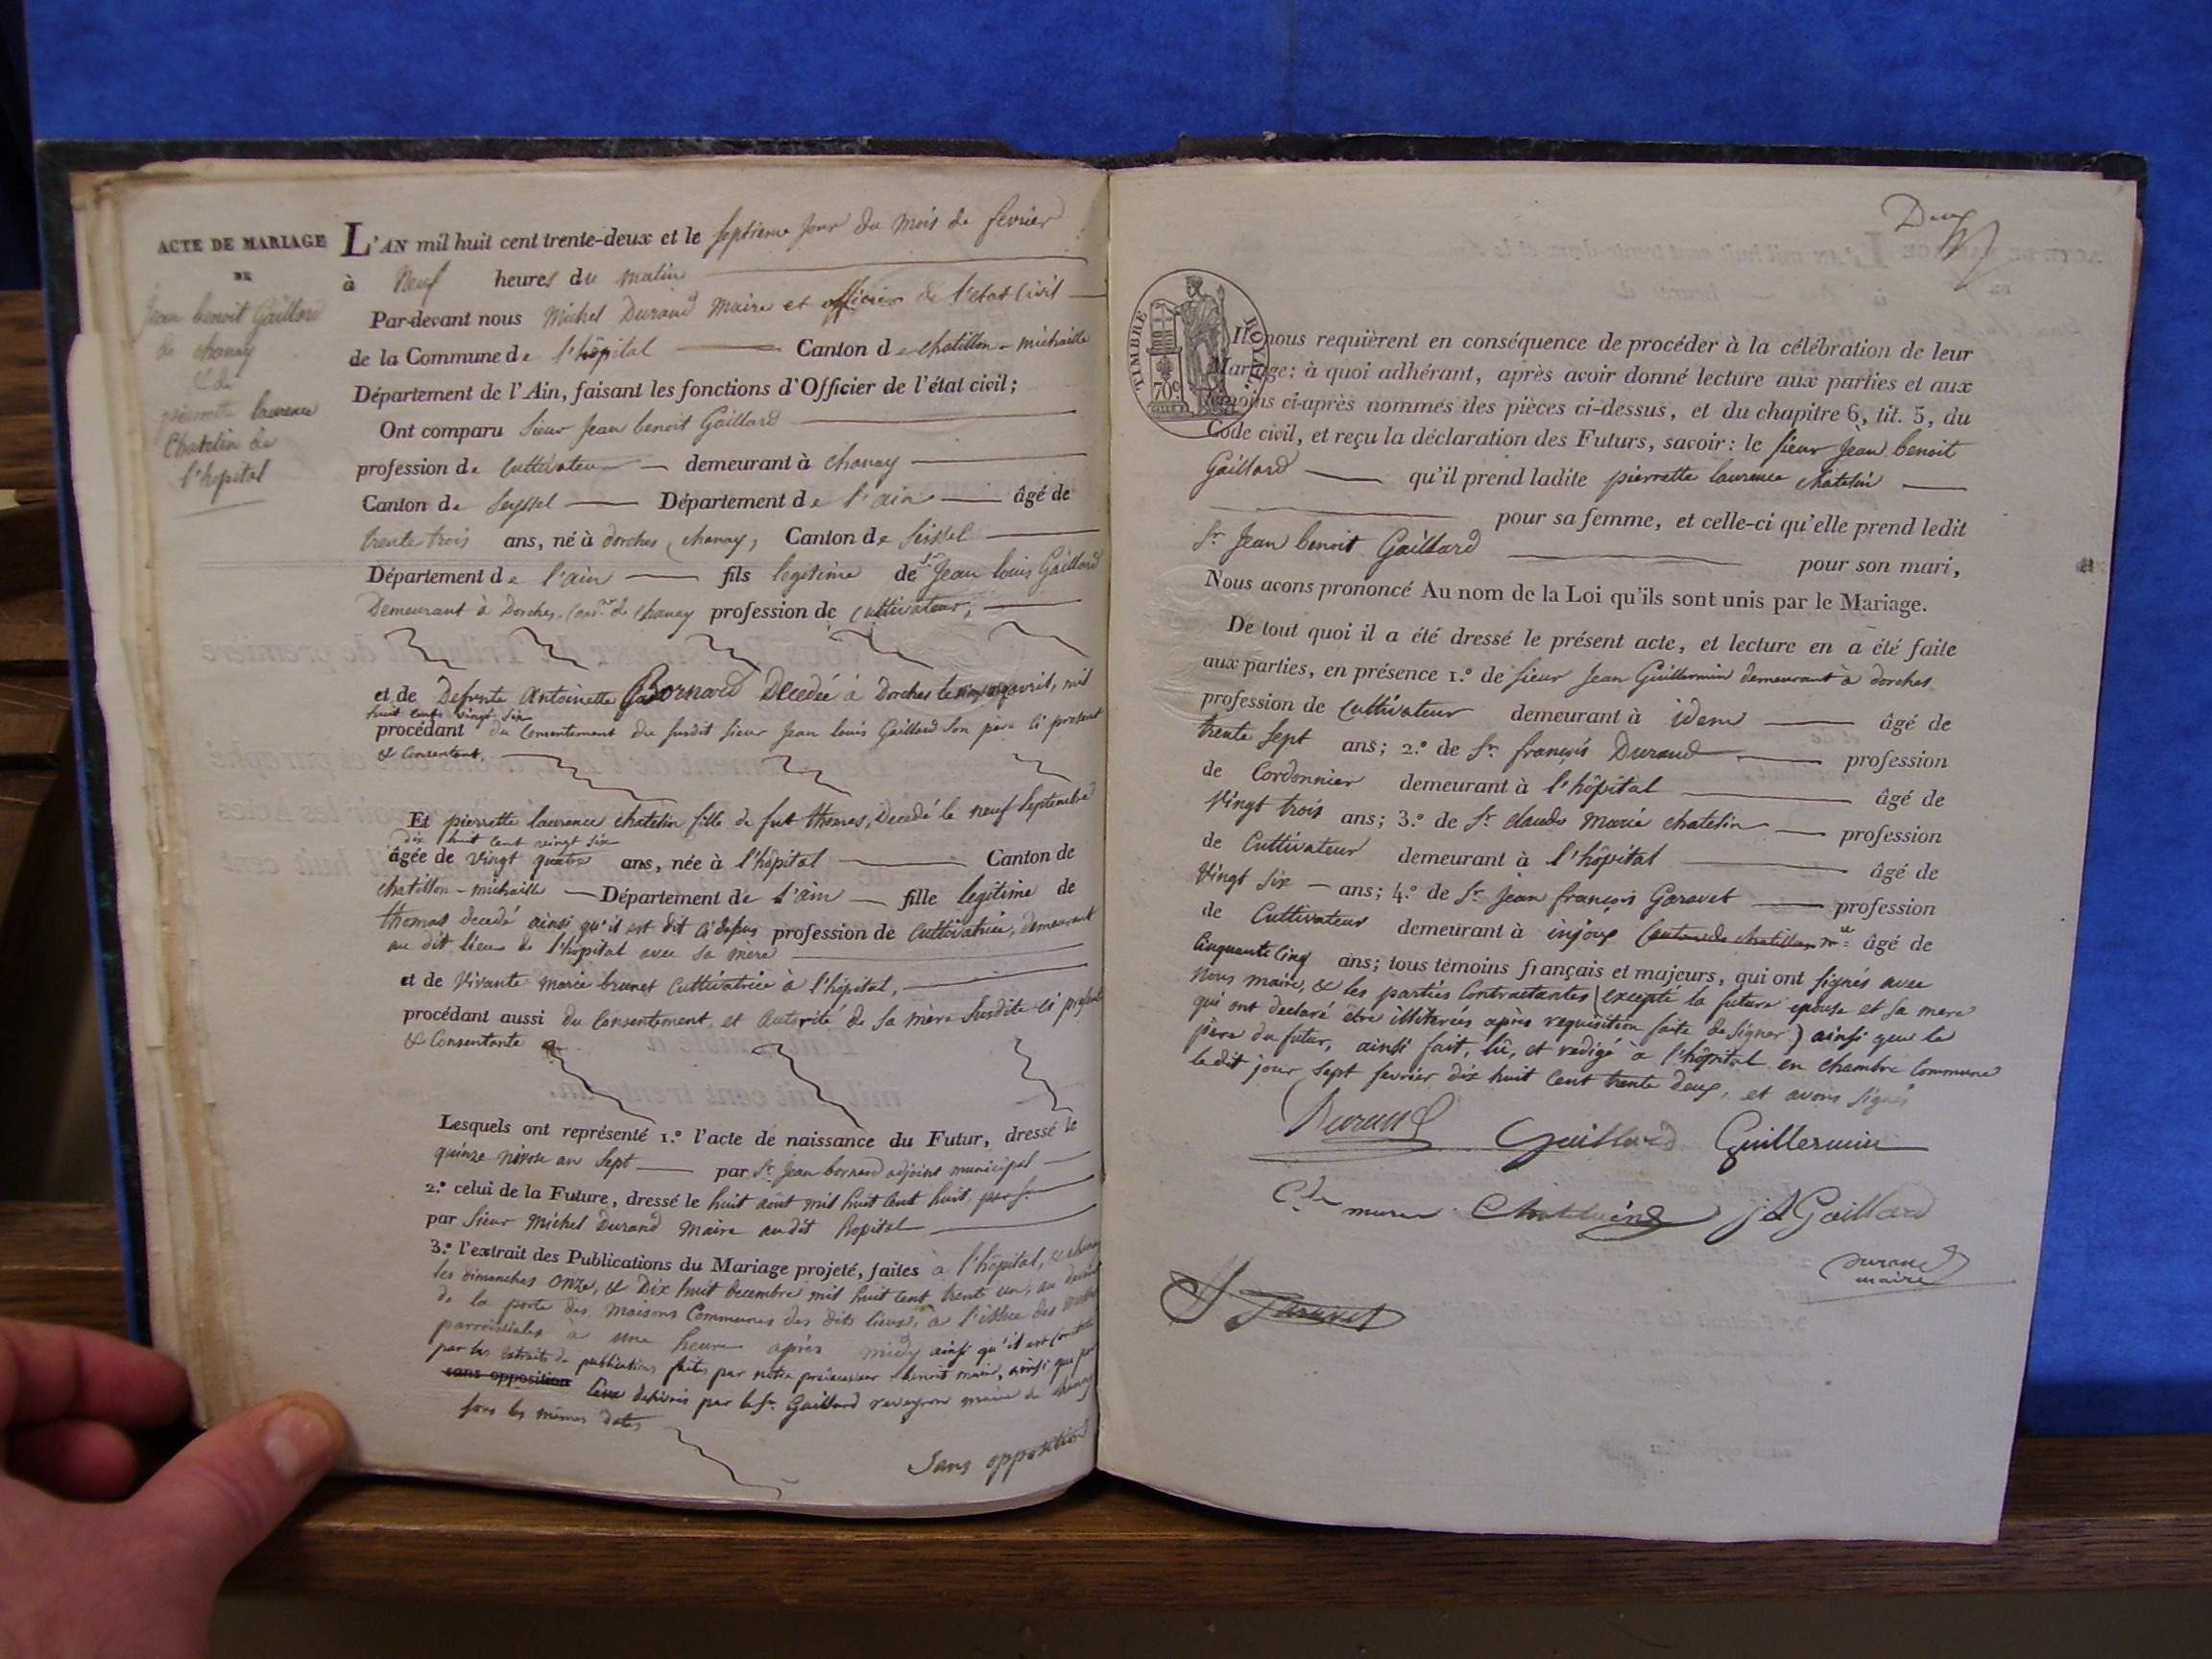 ACTE DE MARIAGE
DE
jean benoit Gaillard
de chanay
& de
pierrette laurence
Chatelin de
l'hopital
L'AN mil huit cent trente-deux et le septieme jour du mois de fevrier
à Neuf heures du matin
Par-devant nous Michel Durand Maire et officier de l'etat Civil
de la Commune de l'hôpital Canton de chatillon - michaille
Département de l'Ain, faisant les fonctions d'Officier de l'état civil;
Ont comparu sieur Jean benoit Gaillard
profession de Cultivateur demeurant à chanay
Canton de Seyssel Département de l'ain âgé de
trente trois ans, né à dorches (chanay) Canton de Seissel
Département de l'ain fils legitime de Sr Jean louis Gaillard
Demeurant à Dorches, Com.ne de Chanay profession de Cultivateur,
et de Defunte Antoinette Bornard Decedée à Dorches le avril, mil
huit cent vingt six
procédant du Consentement du susdit sieur Jean louis Gaillard son père ci present
& Consentant.
Et pierrette laurence chatelin fille de feut thomas, Decedé le neuf Septembre
dix huit cent vingt six
âgée de vingt quatre ans, née à l'hôpital Canton de
chatillon - michaille Département de l'ain fille legitime de
thomas decedé ainsi qu'il est dit ci depus profession de Cultivatrice, demeurant
au dit lieu de l'hopital avec sa mère
et de Vivante marie brunet Cultivatrice à l'hôpital,
procédant aussi du Consentement et Autorité de sa mère Susdite ci present
& Consentante
Lesquels ont représenté 1.º l'acte de naissance du Futur, dressé le
quinze nivose an sept par Sr. Jean bornard adjoint municipal
2.º celui de la Future, dressé le huit août mil huit cent huit
par Sieur Michel Durand Maire audit hopital
3.º l'extrait des Publications du Mariage projeté, faites à l'hôpital, & chanay
les dimanches onze, & Dix huit Decembre mil huit cent trente un, au devant
de la porte des maisons Communes des dits lieux, à l'issue des
parroissiales à une heure après midy ainsi qu'il est
par les extraits de publications faits par notre predecesseur benoit maire, ainsi que par
sans opposition Ceux delivrés par le Sr. Gaillard maire de chanay
sous les mêmes dates
Sans opposition
Deux
TIMBRE ROYAL
70c
Ils nous requièrent en conséquence de procéder à la célébration de leur
Mariage: à quoi adhérant, après avoir donné lecture aux parties et aux
témoins ci-après nommés des pièces ci-dessus, et du chapitre 6, tit. 5, du
Code civil, et reçu la déclaration des Futurs, savoir: le sieur Jean benoit
Gaillard qu'il prend ladite pierrette laurence chatelin
pour sa femme, et celle-ci qu'elle prend ledit
Sr. Jean benoit Gaillard pour son mari,
Nous avons prononcé Au nom de la Loi qu'ils sont unis par le Mariage.
De tout quoi il a été dressé le présent acte, et lecture en a été faite
aux parties, en présence 1.º de sieur Jean Guillermin demeurant à dorches
profession de Cultivateur demeurant à idem âgé de
trente sept ans; 2.º de Sr. françois Durand profession
de Cordonnier demeurant à l'hôpital âgé de
vingt trois ans; 3.º de Sr. claude marie chatelin profession
de Cultivateur demeurant à l'hôpital âgé de
vingt six ans; 4.º de Sr. Jean françois Garavet profession
de Cultivateur demeurant à injoux Canton de chatillon âgé de
Cinquante Cinq ans; tous témoins français et majeurs, qui ont signés avec
Nous maire, & les parties Contractantes (excepté la future epouse et sa mere
qui ont declaré etre illiterées après requisition faite de signer) ainsi que le
père du futur, ainsi fait, lu, et redigé à l'hôpital en chambre Commune
le dit jour Sept fevrier dix huit Cent trente deux, et avons signés
Durand Gaillard Guillermin
Cde marie Chatelain J L Gaillard
Durand
maire
Garavet